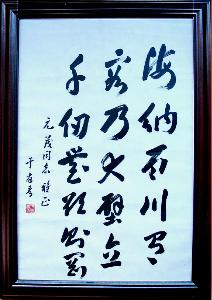 海纳百川有
容乃大壁立
千仞無欲则刚
元茂同志 雅正